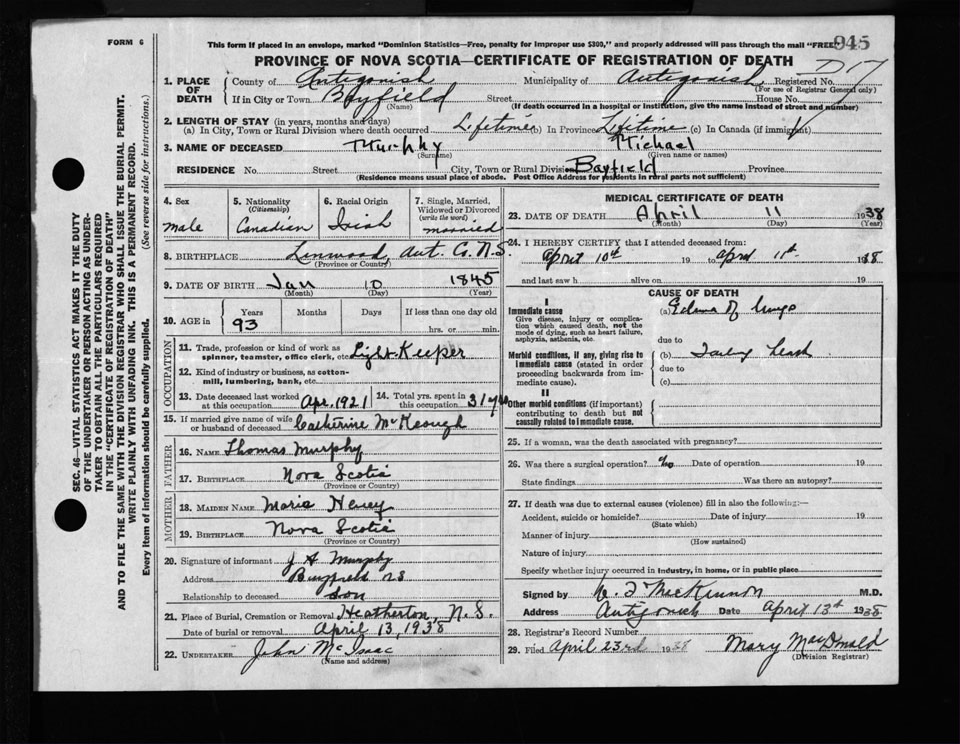 FORM 6
This form if placed in an envelope, marked "Dominion Statistics—Free, penalty for improper use $300," and properly addressed will pass through the mail "FREE" 945
PROVINCE OF NOVA SCOTIA—CERTIFICATE OF REGISTRATION OF DEATH
1. PLACE OF DEATH County of Antigonish Municipality of Antigonish Registered No. D17
(For use of Registrar General only)
If in City or Town Bayfield Street House No.
(Name) (If death occurred in a hospital or institution, give the name instead of street and number)
2. LENGTH OF STAY (in years, months and days)
(a) In City, Town or Rural Division where death occurred Lifetime (b) In Province Lifetime (c) In Canada (if immigrant)
3. NAME OF DECEASED Murphy Michael
(Surname) (Given name or names)
RESIDENCE No. Street City, Town or Rural Division Bayfield Province
(Residence means usual place of abode. Post Office Address for residents in rural parts not sufficient)
4. Sex 5. Nationality (Citizenship) 6. Racial Origin 7. Single, Married, Widowed or Divorced (write the word)
male Canadian Irish married
8. BIRTHPLACE Linwood, Ant. Co. N.S.
(Province or Country)
9. DATE OF BIRTH Jan 10 1845
(Month) (Day) (Year)
10. AGE in Years Months Days If less than one day
93 hrs. or min.
OCCUPATION
11. Trade, profession or kind of work as spinner, teamster, office clerk, etc. Light-Keeper
12. Kind of industry or business, as cotton-mill, lumbering, bank, etc.
13. Date deceased last worked at this occupation Apr. 1921 14. Total yrs. spent in this occupation 31
15. If married give name of wife or husband of deceased Catherine McKeough
FATHER
16. NAME Thomas Murphy
17. BIRTHPLACE Nova Scotia
(Province or Country)
MOTHER
18. MAIDEN NAME Maria
19. BIRTHPLACE Nova Scotia
(Province or Country)
20. Signature of informant J A Murphy
Address Bayfield NS
Relationship to deceased son
21. Place of Burial, Cremation or Removal Heatherton, N.S.
Date of burial or removal April 13, 1938
22. UNDERTAKER John McIsaac
(Name and address)
MEDICAL CERTIFICATE OF DEATH
23. DATE OF DEATH April 11 1938
(Month) (Day) (Year)
24. I HEREBY CERTIFY that I attended deceased from:
April 10th 19 to April 11th 1938
and last saw h alive on 19
CAUSE OF DEATH
I
Immediate cause (a) Edema of lungs
Give disease, injury or complication which caused death, not the mode of dying, such as heart failure, asphyxia, asthenia, etc.
due to
Morbid conditions, if any, giving rise to immediate cause (stated in order proceeding backwards from immediate cause). (b)
due to
(c)
II
Other morbid conditions (if important) contributing to death but not causally related to immediate cause.
25. If a woman, was the death associated with pregnancy?
26. Was there a surgical operation? no Date of operation 19
State findings Was there an autopsy?
27. If death was due to external causes (violence) fill in also the following:—
Accident, suicide or homicide? Date of injury 19
(State which)
Manner of injury
(How sustained)
Nature of injury
Specify whether injury occurred in industry, in home, or in public place
Signed by MacKinnon M.D.
Address Antigonish Date April 13th 1938
28. Registrar's Record Number
29. Filed April 23rd 1938 Mary MacDonald
(Division Registrar)
SEC. 46—VITAL STATISTICS ACT MAKES IT THE DUTY
OF THE UNDERTAKER OR PERSON ACTING AS UNDER-
TAKER TO OBTAIN ALL THE PARTICULARS REQUIRED
IN THE "CERTIFICATE OF REGISTRATION OF DEATH"
AND TO FILE THE SAME WITH THE DIVISION REGISTRAR WHO SHALL ISSUE THE BURIAL PERMIT.
WRITE PLAINLY WITH UNFADING INK. THIS IS A PERMANENT RECORD.
Every item of information should be carefully supplied. (See reverse side for instructions.)